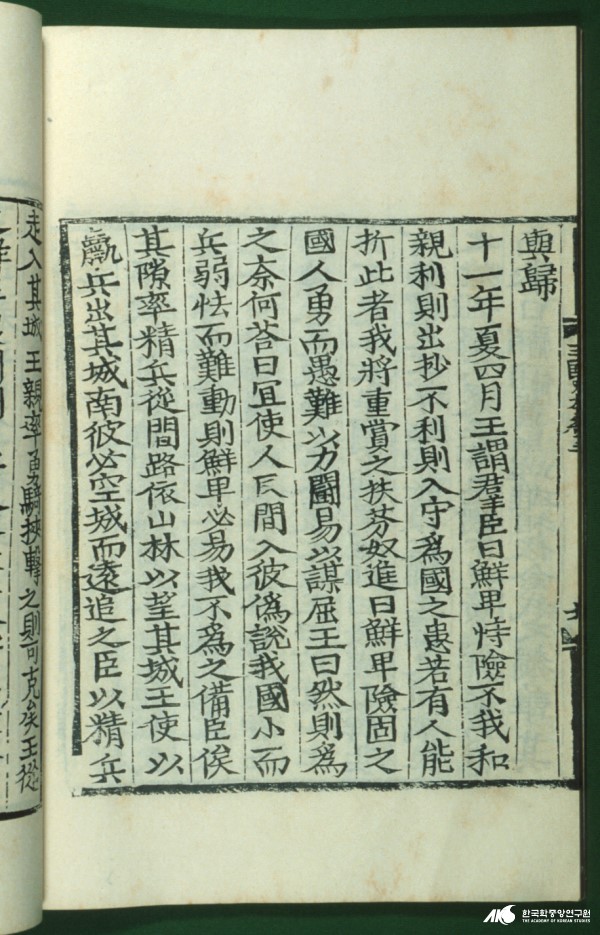 輿歸
十一年夏四月王謂群臣曰鮮卑恃險不我和
親利則出抄不利則入守爲國之患若有人能
折此者我將重賞之扶芬奴進曰鮮卑險固之
國人勇而愚難以力鬪易以謀屈王曰然則爲
之奈何荅曰宜使人反間入彼僞說我國小而
兵弱怯而難動則鮮卑必易我不爲之備臣俟
其隙率精兵從間路依山林以望其城王使以
羸兵出其城南彼必空城而遠追之臣以精兵
走入其城王親率勇騎挾擊之則可克矣王從
한국학중앙연구원
THE ACADEMY OF KOREAN STUDIES